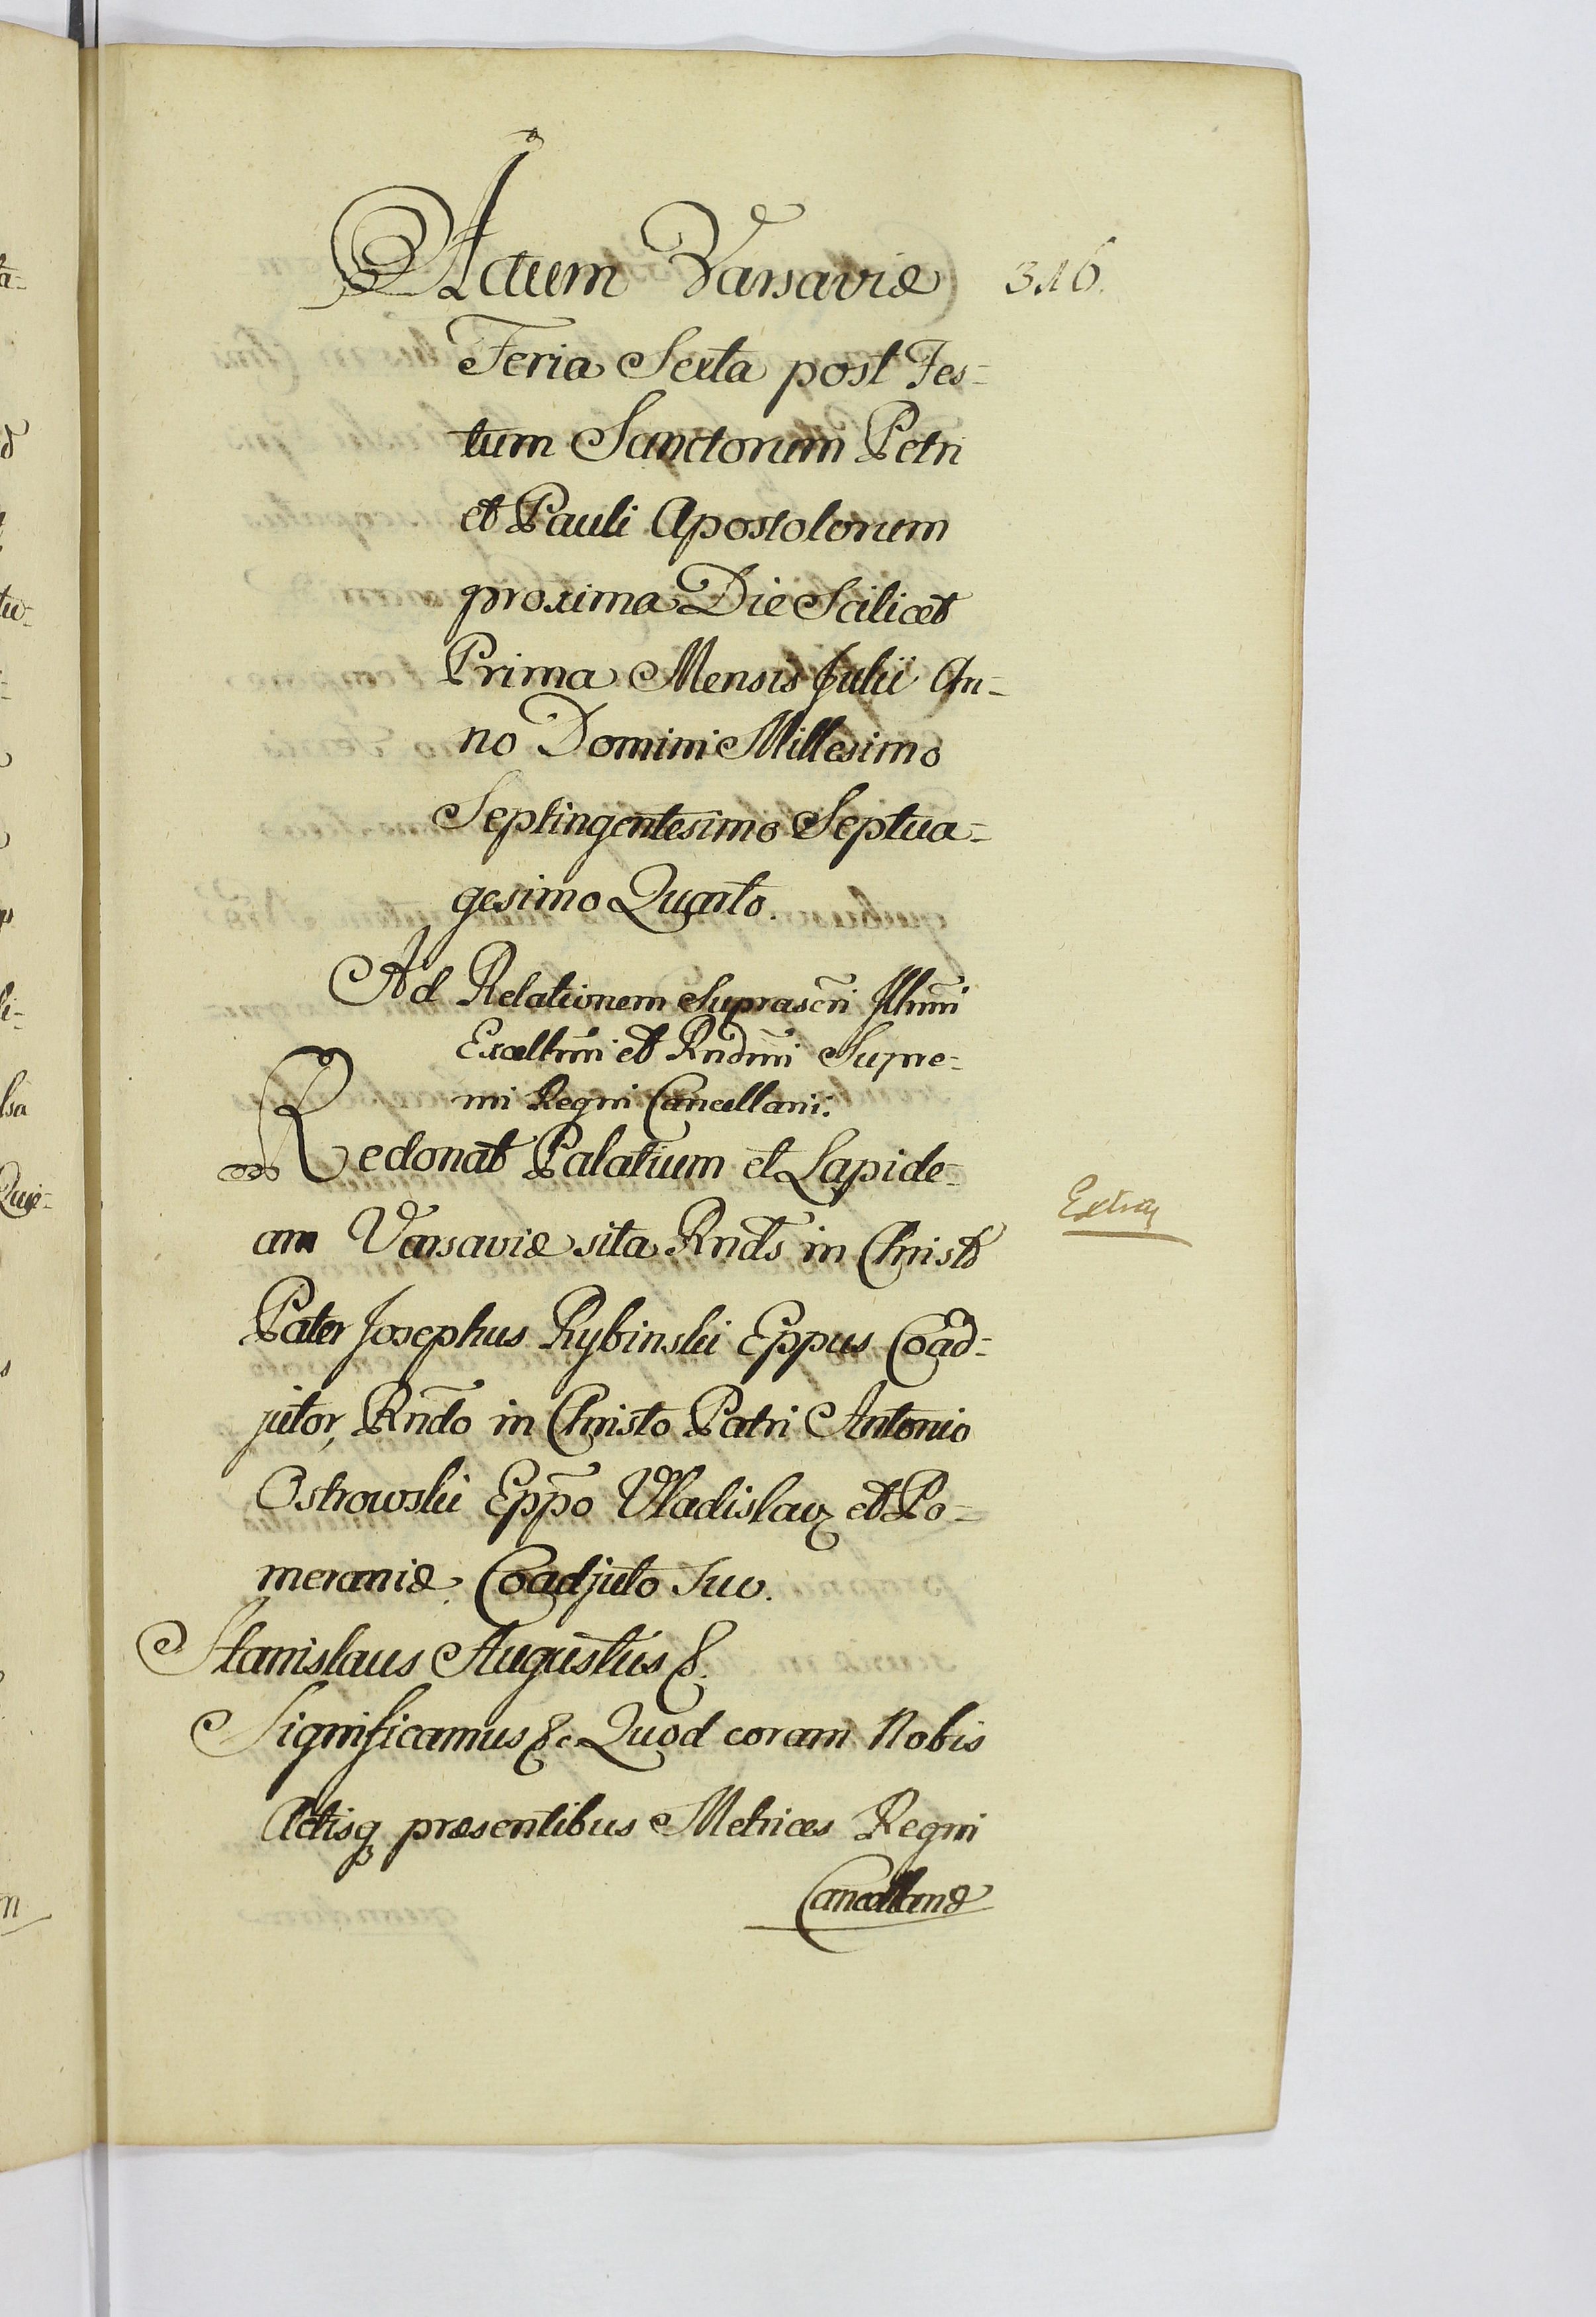 Actum Varsaviæ 316.
Feria Sexta post Fes=
tum Sanctorum Petri
et Pauli Apostolorum
proxima Die Scilicet
Prima Mensis Julii An=
no Domini Millesimo
Septingentesimo Septua=
gesimo Quarto.
Ad Relationem Suprascri Illmi
Excellmi et Rndmi Supre=
mi Regni Cancellarii.
Redonat Palatium et Lapide=
am Varsaviæ sita Rnds in Christo
Pater Josephus Rybinski Eppus Coad=
jutor, Rndo in Christo Patri Antonio
Ostrowski Eppo Vladislav et Po=
meraniæ. Coadjuto Suo.
Extra
Stanislaus Augustus &.
Significamus &c Quod coram Nobis
Actisq præsentibus Metrices Regni
Cancellariæ